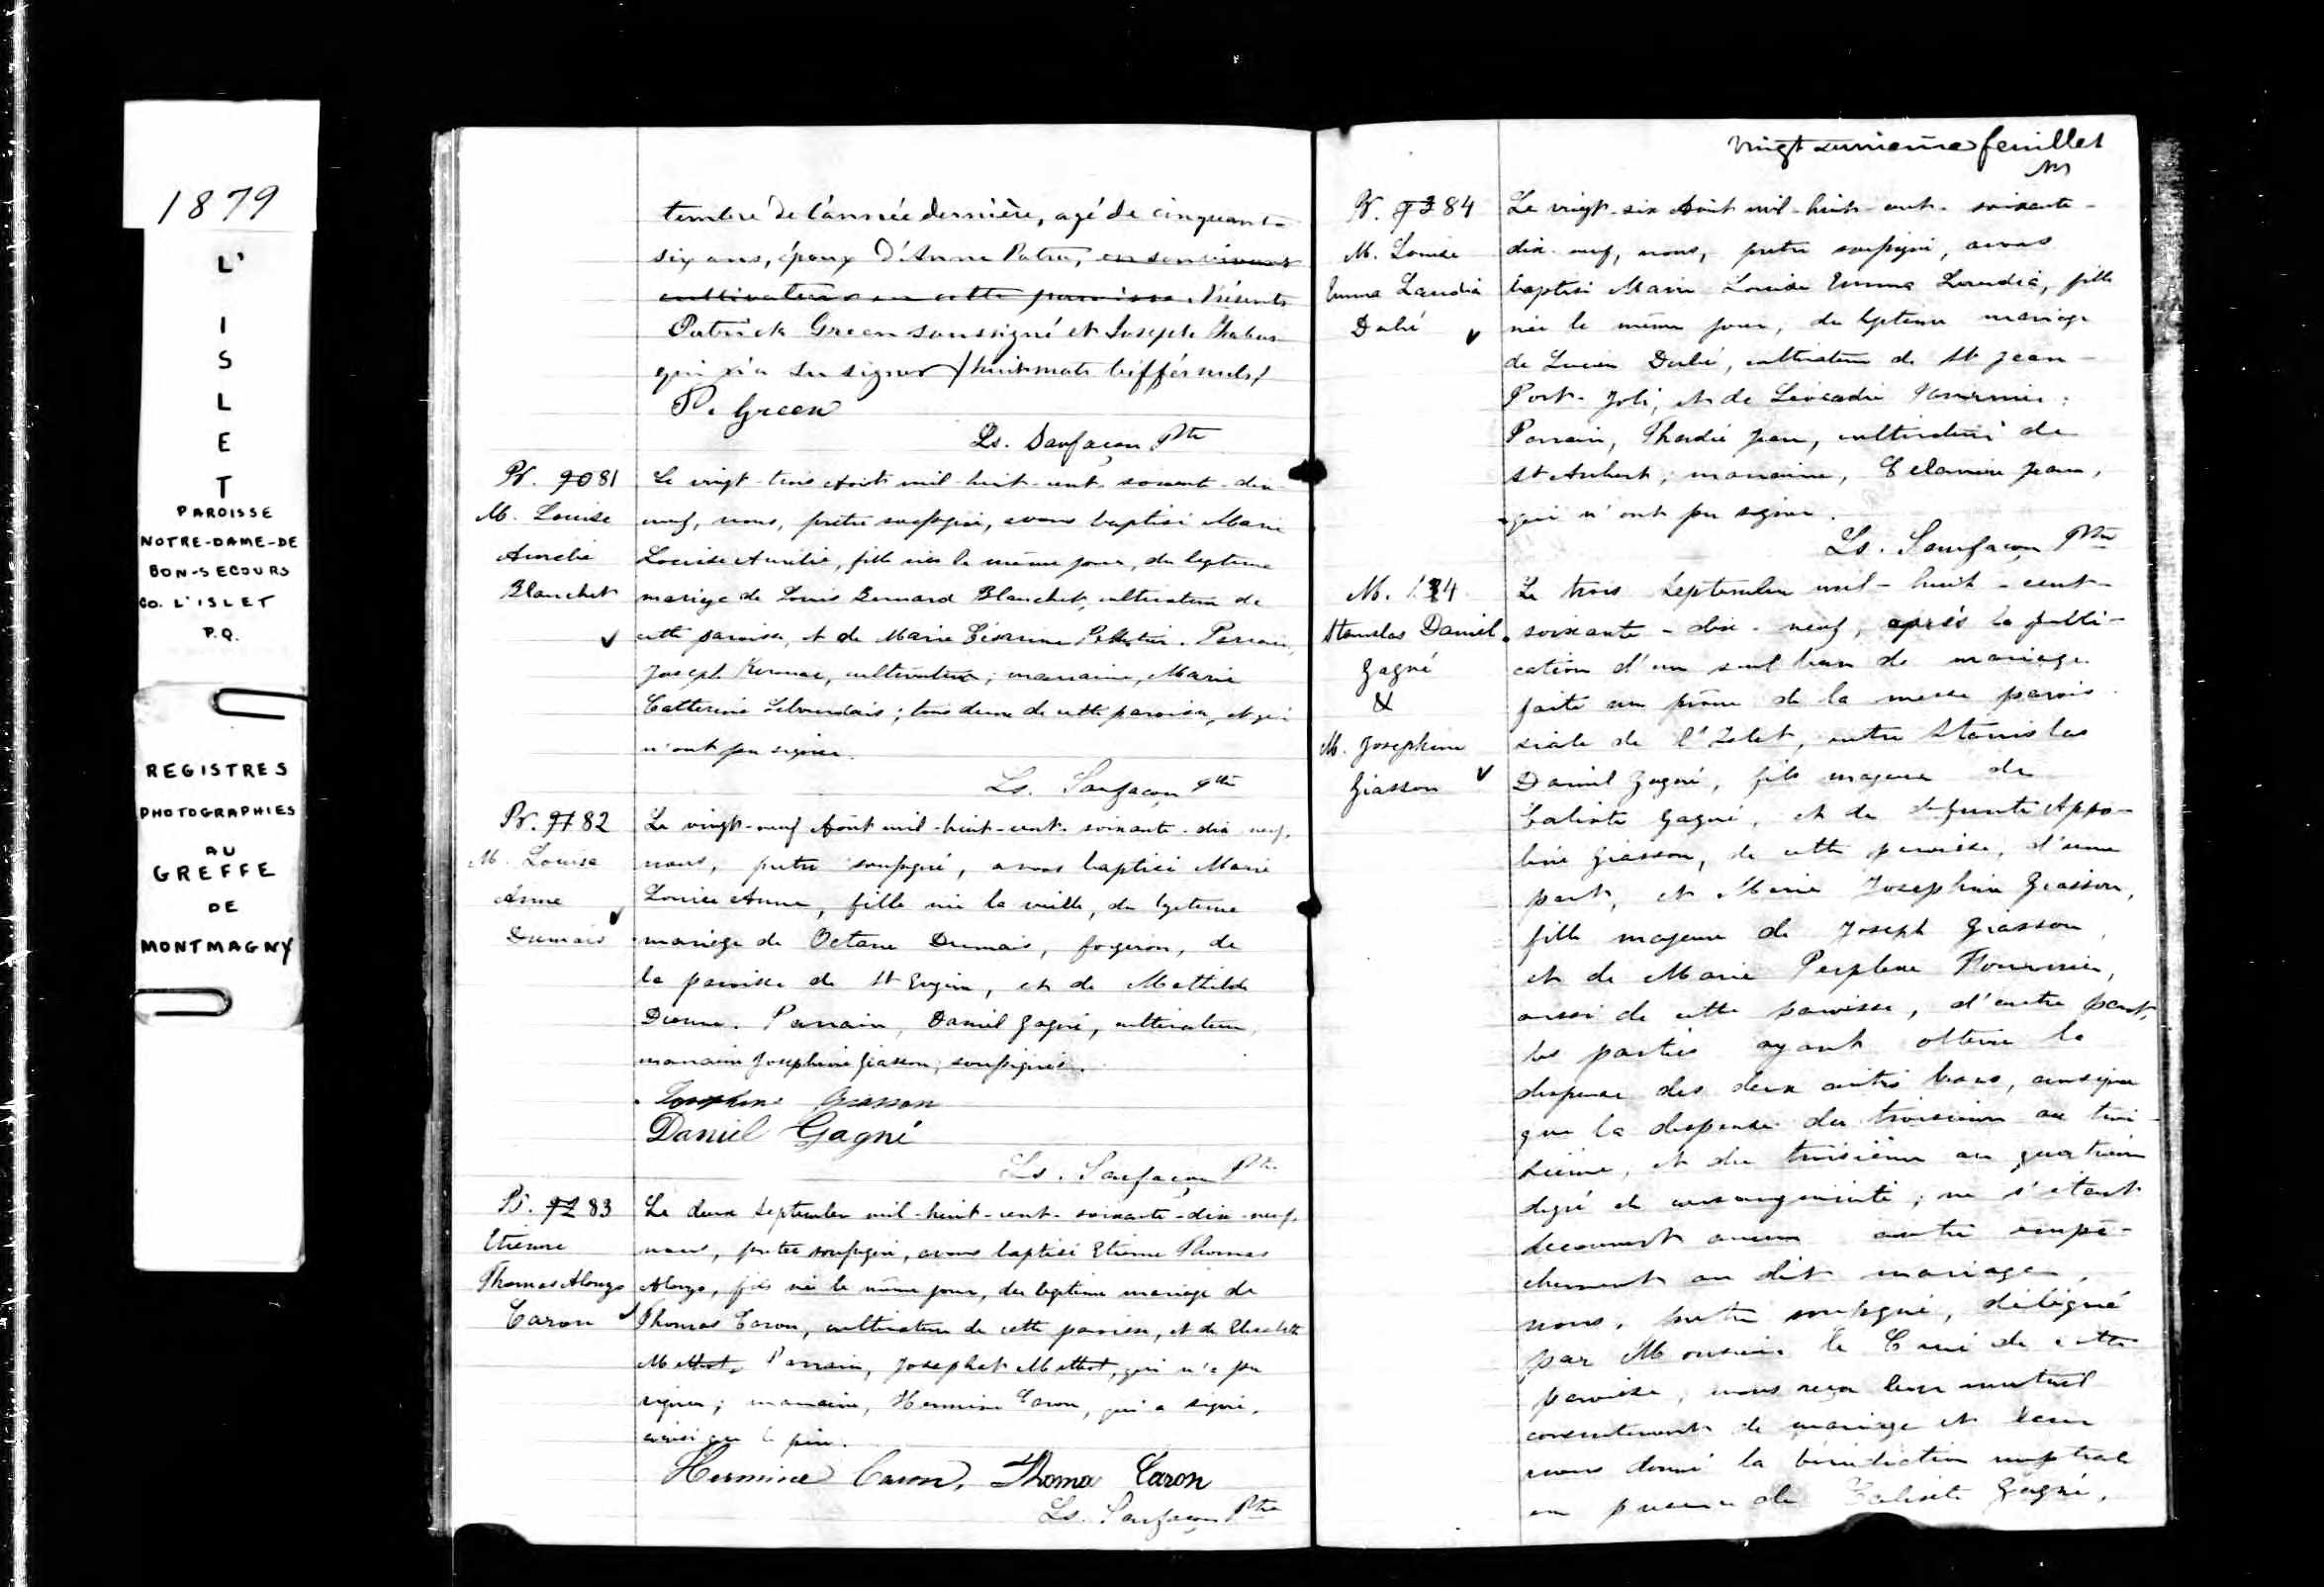 1879
L'
I
S
L
E
T
PAROISSE
NOTRE-DAME-DE
BON-SECOURS
CO. L'ISLET
P.Q.
REGISTRES
PHOTOGRAPHIES
AU
GREFFE
DE
MONTMAGNY
tembre de l'année dernière, agé de cinquante
six ans, époux d'Anne Patru, en son vivant
cultivateur en cette paroisse. Présents
Patrick Green soussigné et Joseph
qui n'a su signer / huit mots biffés nuls /
P. Green
Ls. Sanfaçon Ptr
B. 70 81
M. Louise
Aurélie
Blanchet
Le vingt-trois Août mil-huit-cent-soixante-dix-
neuf, nous, prêtre soussigné, avons baptisé Marie
Louise Aurélie, fille née le même jour, du légitime
mariage de Louis Bernard Blanchet, cultivateur de
cette paroisse, et de Marie Césarine Pelletier. Parrain,
Joseph Kirouac, cultivateur; marraine, Marie
Catherine Lebourdais; tous deux de cette paroisse, et qui
n'ont pu signer.
Ls. Sanfaçon Ptre
B. 71 82
M. Louise
Anne
Dumais
Le vingt-neuf Août mil-huit-cent-soixante-dix neuf,
nous, prêtre soussigné, avons baptisé Marie
Louise Anne, fille née la veille, du légitime
mariage de Octave Dumais, forgeron, de
la paroisse de St Eugène, et de Mathilde
Dionne. Parrain, Daniel Gagné, cultivateur,
marraine Joséphine Giasson, soussignés.
Josephine Giasson
Daniel Gagné
Ls. Sanfaçon Ptr.
B. 72 83
Etienne
Thomas Alonzo
Caron
Le deux Septembre mil-huit-cent-soixante-dix-neuf,
nous, prêtre soussigné, avons baptisé Etienne Thomas
Alonzo, fils né le même jour, du légitime mariage de
Thomas Caron, cultivateur de cette paroisse, et de Elisabeth
Methot. Parrain, Josephat Methot, qui n'a pu
signer; marraine, Hermine Caron, qui a signé,
ainsi que le père.
Hermine Caron, Thomas Caron
Ls. Sanfaçon Ptre
vingt unième feuillet
B. 73 84
M. Louise
Emma Laudia
Dubé
Le vingt-six Août mil-huit-cent-soixante-
dix-neuf, nous, prêtre soussigné, avons
baptisé Marie Louise Emma Laudia, fille
née le même jour, du légitime mariage
de Lucien Dubé, cultivateur de St Jean-
Port-Joli, et de Léocadie Fournier.
Parrain, Thadé Jean, cultivateur de
St Aubert; marraine, Célanire Jean,
qui n'ont pu signer.
Ls. Sanfaçon Ptre
M. 14
Stanislas Daniel
Gagné
&
M. Josephine
Giasson
Le trois Septembre mil-huit-cent-
soixante-dix-neuf, après la publi-
cation d'un seul ban de mariage
faite au prône de la messe parois
siale de l'Islet, entre Stanislas
Daniel Gagné, fils majeur de
Calixte Gagné, et de défunte Appo-
line Giasson, de cette paroisse, d'une
part, et Marie Josephine Giasson,
fille majeure de Joseph Giasson,
et de Marie Perpétue Fournier,
aussi de cette paroisse, d'autre part,
les parties ayant obtenu la
dispense des deux autres bans, ainsi que
que la dispense du troisième au troi-
sième, et du troisième au quatrième
degré de consanguinité; ne s'étant
découvert aucun autre empê-
chement au dit mariage,
nous, prêtre soussigné, délégué
par Monsieur le Curé de cette
paroisse, avons reçu leur mutuel
consentement de mariage et leur
avons donné la bénédiction nuptiale
en présence de Calixte Gagné,